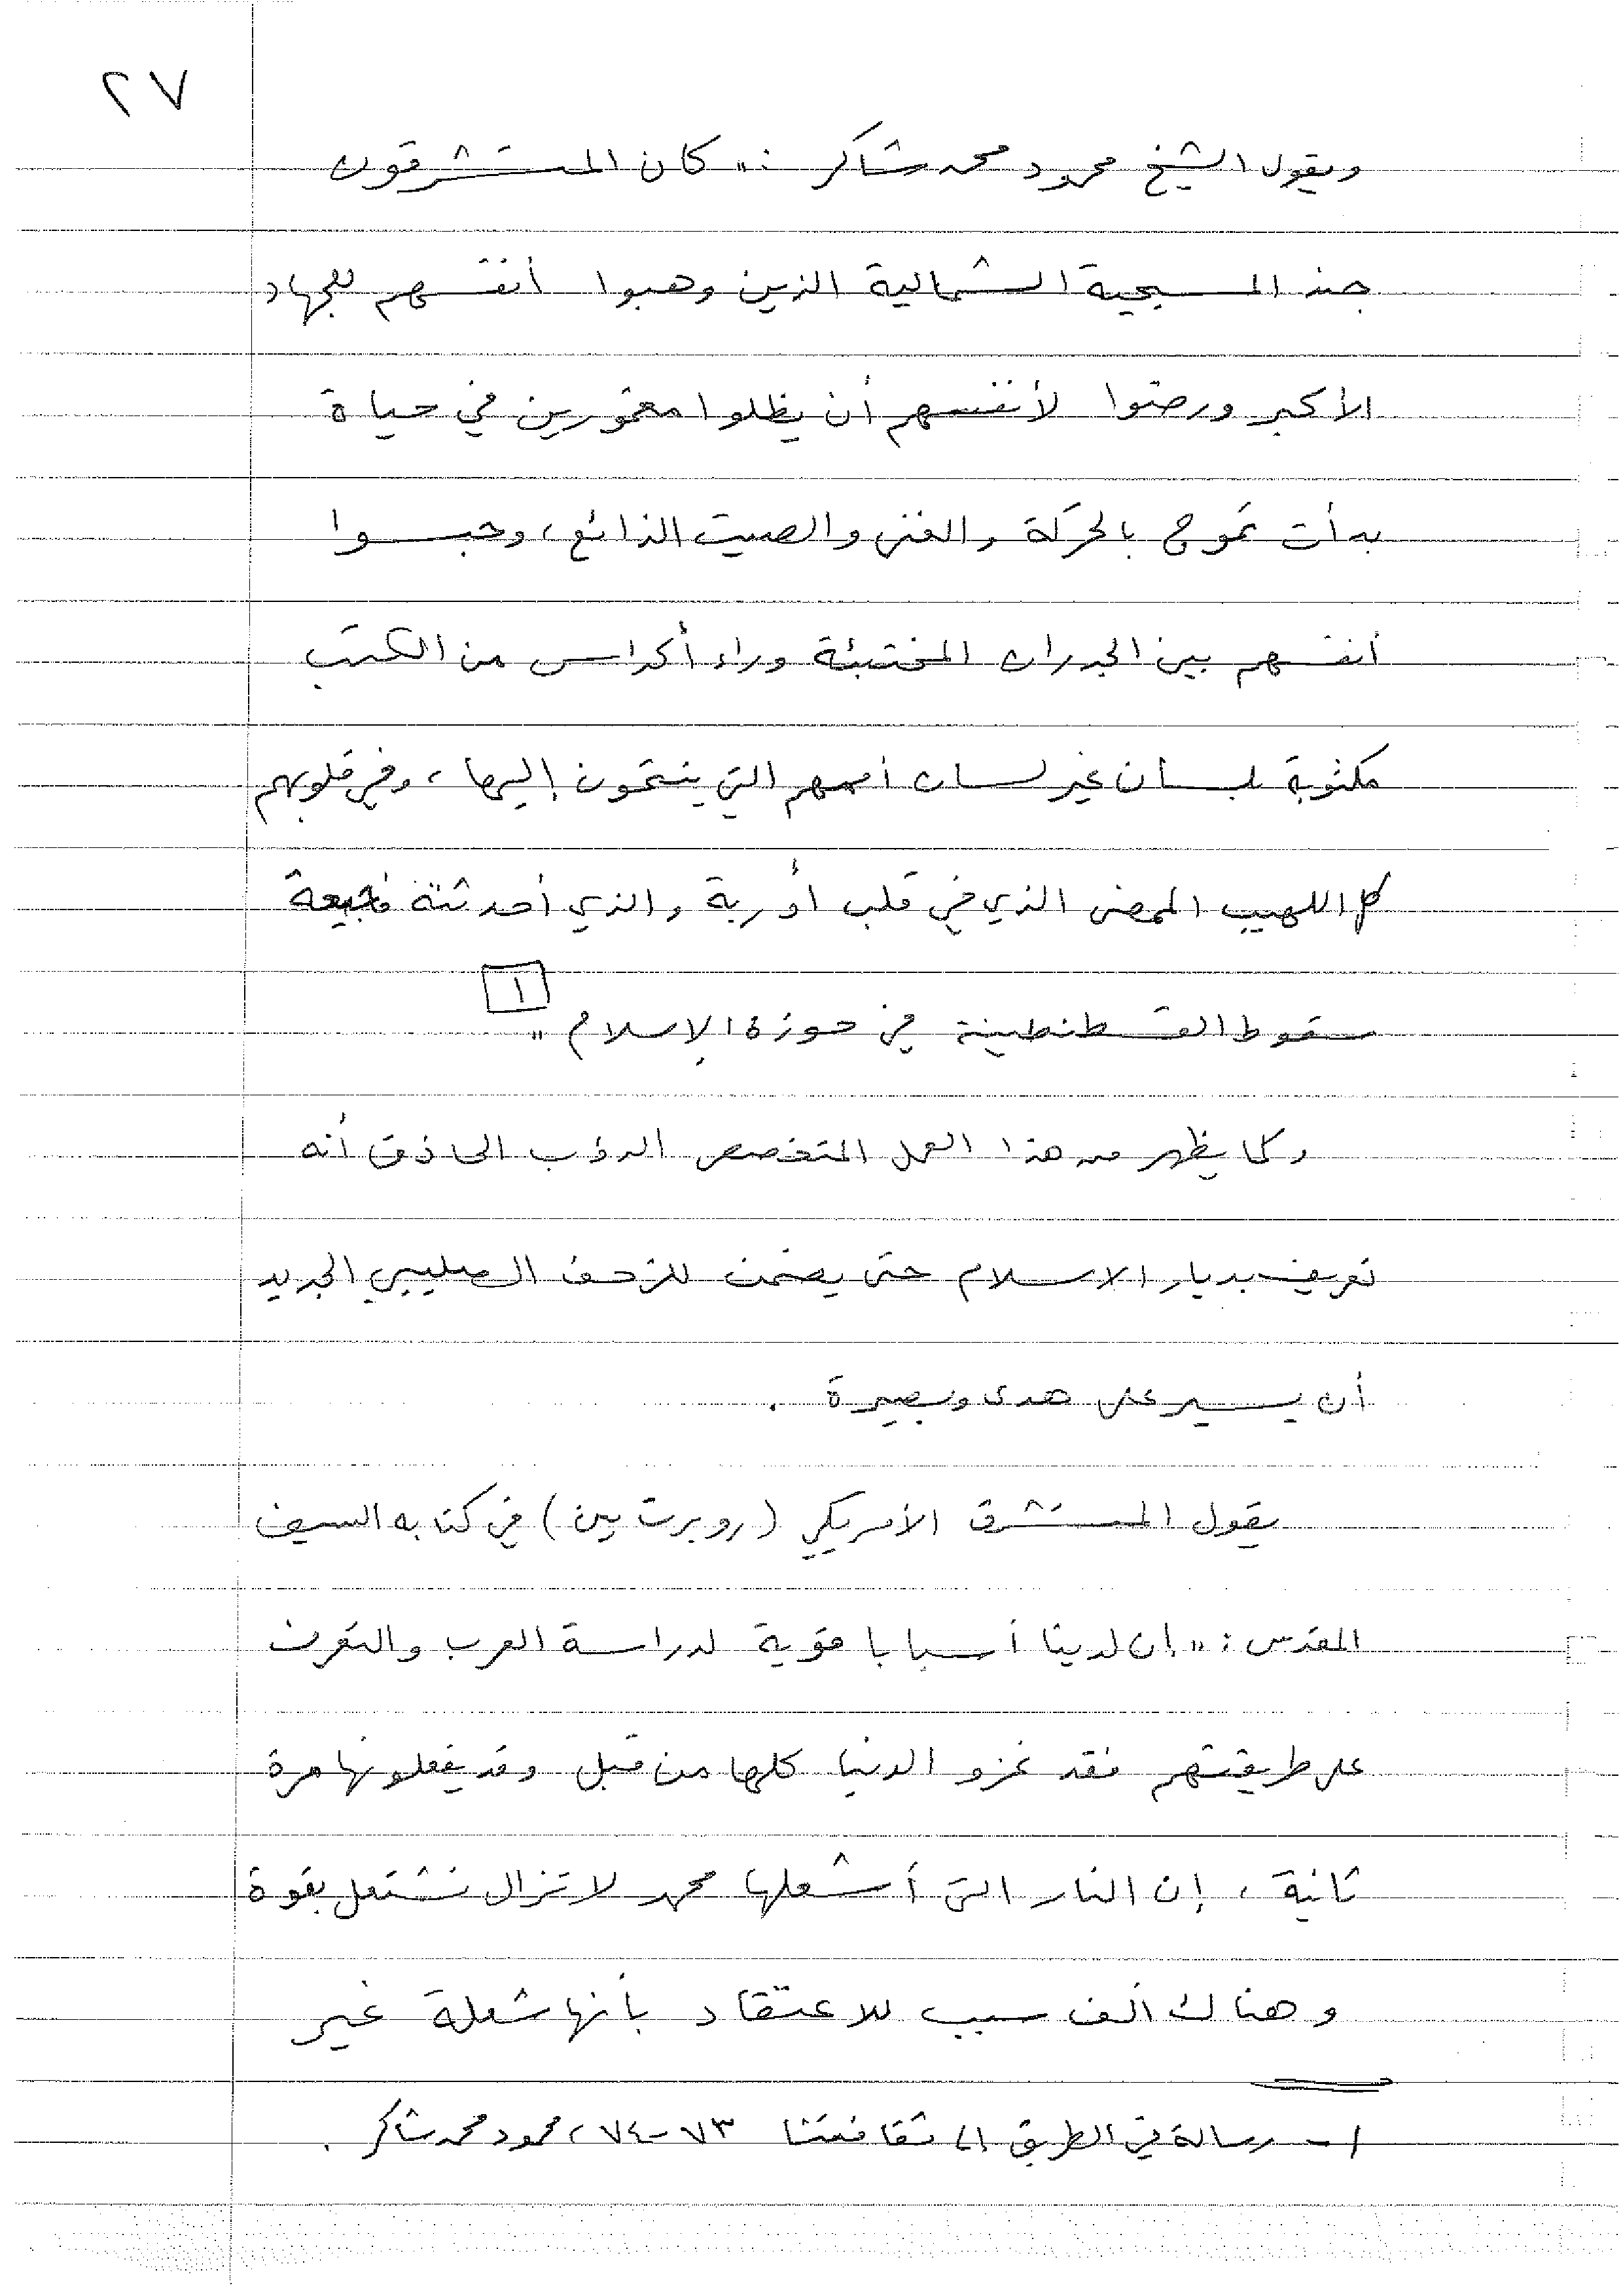 ٢٧
ويقول الشيخ محمود محمد شاكر : " كان المستشرقون
جند المسيحية الشمالية الذين وهبوا أنفسهم للجهاد
الأكبر ورضوا لأنفسهم أن يظلوا مغمورين في حياة
بدأت تموج بالحركة والغنى والصيت الذائع ، وحبسوا
أنفسهم بين الجدران المختبئة وراء أكداس من الكتب
مكتوبة بلسان غير لسان أممهم التي ينتمون إليها ، وفي قلوبهم
كل اللهيب الممض الذي في قلب أوربة والذي أحدثته فجيعة
سقوط القسطنطينية في حوزة الإسلام " [١]
وكما يظهر من هذا العمل المتخصص الدؤب الحاذق أنه
تعريف بديار الاسلام حتى يضمن للزحف الصليبي الجديد
أن يسير على هدى وبصيرة .
يقول المستشرق الأمريكي (روبرت بين) في كتابه السيف
المقدس : " إن لدينا أسبابا قوية لدراسة العرب والتعرف
على طريقتهم فقد غزو الدنيا كلها من قبل وقد يفعلونها مرة
ثانية ، إن النار التي أشعلها محمد لا تزال تشتعل بقوة
وهناك ألف سبب للاعتقاد بأنها شعلة غير
١ - رسالة في الطريق إلى ثقافتنا ٧٣-٧٤ ، محمود محمد شاكر .